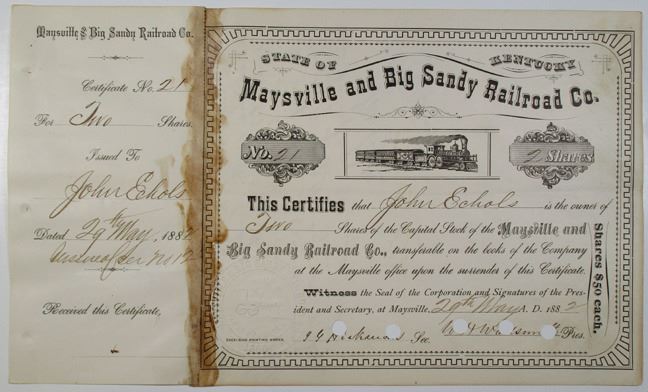 Maysville & Big Sandy Railroad Co.
Certificate No. 21
For Two Shares.
Issued To
John Echols
Dated 29th May, 1882
No 12
Received this Certificate,
STATE OF KENTUCKY
Maysville and Big Sandy Railroad Co.
No. 21
2 Shares
This Certifies that John Echols is the owner of
Two Shares of the Capital Stock of the Maysville and
Big Sandy Railroad Co., transferable on the books of the Company
at the Maysville office upon the surrender of this Certificate.
Witness the Seal of the Corporation and Signatures of the Pres-
ident and Secretary, at Maysville, 29th May A. D. 1882
Sec. Pres.
Shares $50 each.